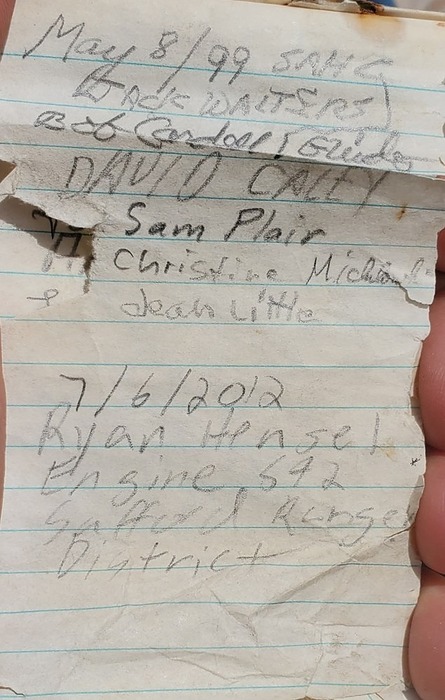 May 8/99 SAHC
JACK WALTERS
Bob Cardell (Guide)
DAVID CALEY
Sam Plair
Christine
Jean Little
7/6/2012
Ryan Hensel
Engine 592
Safford Ranger
District